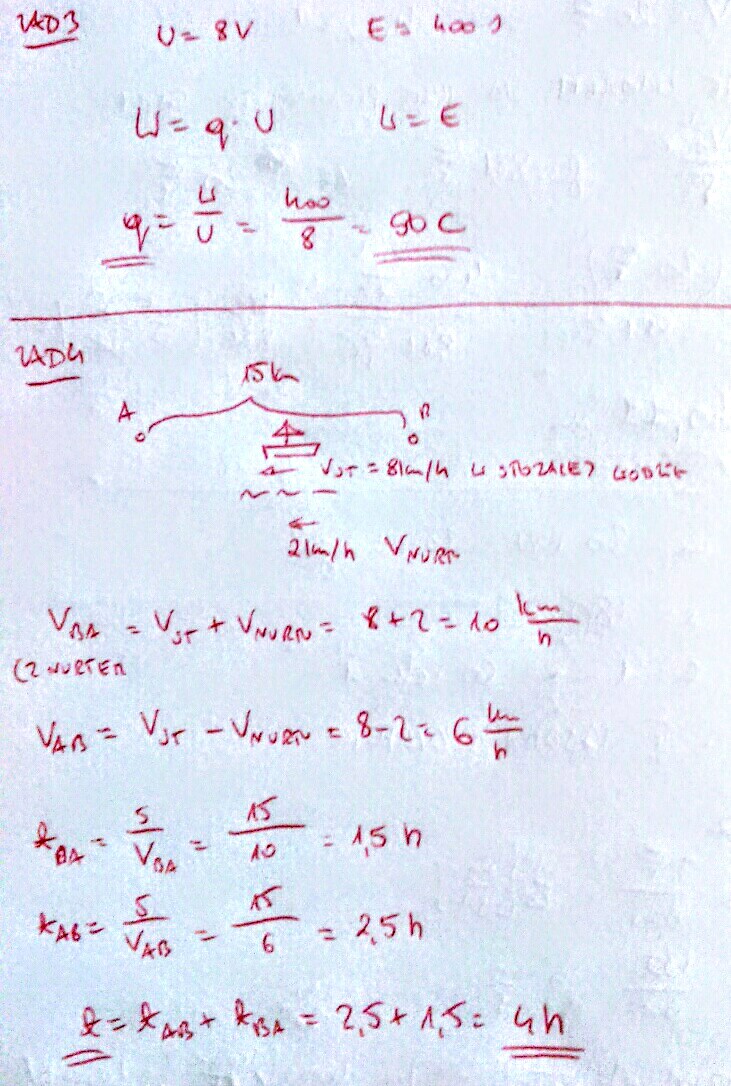 ZAD3 U = 8V E = 400 J
W = q · U W = E
q = W/U = 400/8 = 50 C
ZAD4
15km
A B
V_ST = 8km/h W STOJĄCEJ WODZIE
2km/h V_NURTU
V_BA = V_ST + V_NURTU = 8 + 2 = 10 km/h
(Z NURTEM
V_AB = V_ST - V_NURTU = 8 - 2 = 6 km/h
t_BA = S/V_BA = 15/10 = 1,5 h
t_AB = S/V_AB = 15/6 = 2,5 h
t = t_AB + t_BA = 2,5 + 1,5 = 4h